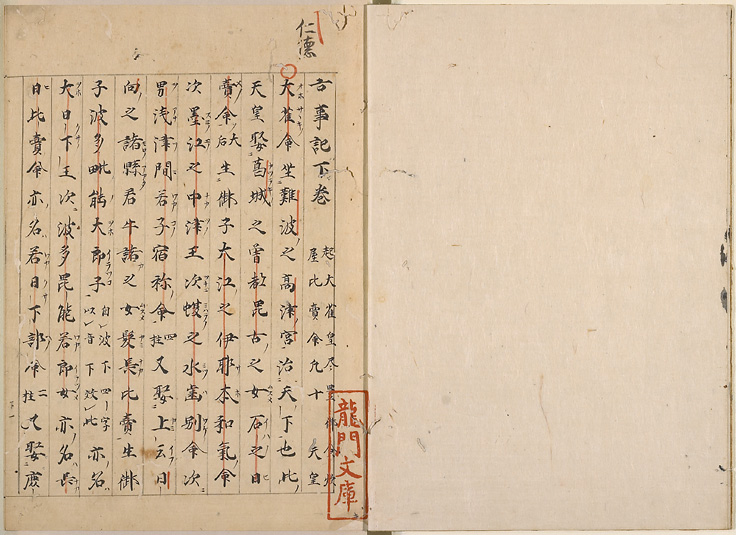 仁德
古事記下卷 起大雀皇尽豊御食炊
屋比賣命凡十 天皇
大雀命坐難波之高津宮治天下也此
天皇娶葛城之曽教毘古之女石之日
賣命大后生御子大江之伊耶本和氣命
次墨江之中津王次蝮之水歯別命次
男浅津間若子宿祢命四柱又娶上云日
向之諸縣君牛諸之女髪長比賣生御
子波多毗能大郎子自波下四字以音下效此亦名
大日下王次波多毘能若郎女亦名長
日比賣命亦名若日下部命二柱又娶庶
龍門文庫